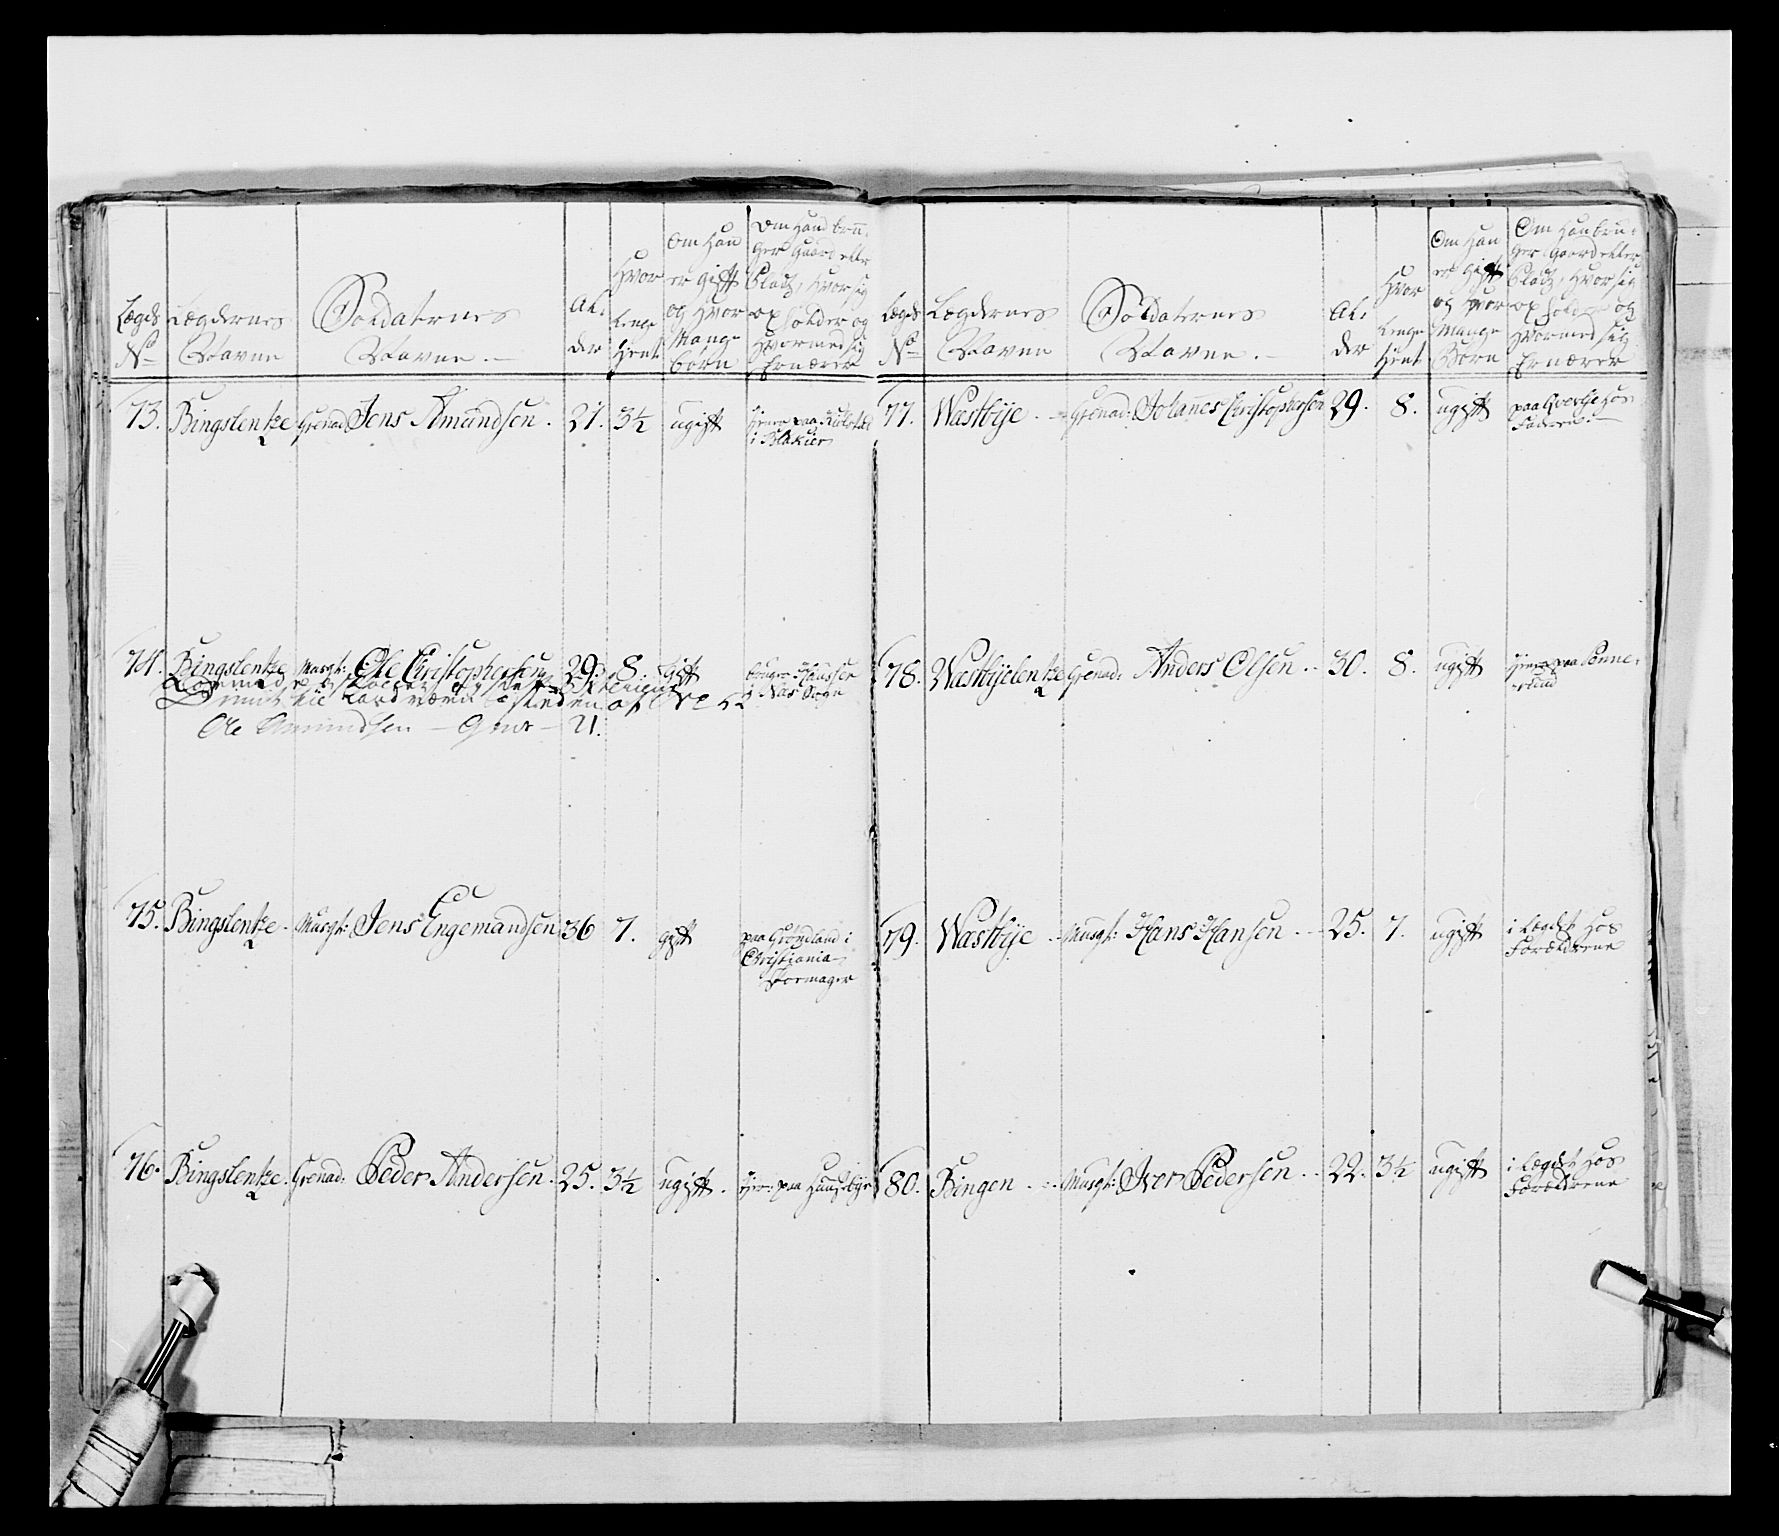 Lægds No
Lægdernes Navne
Soldaternes Navne.
Al. der
Hvor Lenge tient
Om Han er gift og Hvor Mange Børn
Om Hand bru- ger Gaard eller Platz, Hvor sig op holder og Hvormed sig Ernærer
73. Bingslentze Grenad. Jens Amundsen. 21. 3½ ugift tiener paa
i Blakier
74. Bingslentze Musqt: Ole Christophersen 29 8. gift
i Næs Sogn
Ole Amundsen — 21.
75. Bingslentze. Musqt: Jens Engemandsen 36 7. gift paa Grønland i
Christiania
76. Bingslentze. Grenad: Peder Andersen. 25. 3½ ugift. paa
Lægds No
Lægdernes Navne
Soldaternes Navne.
Al. der
Hvor Lenge tient
Om Han er gift og Hvor Mange Børn
Om Han bru- ger Gaard eller Platz, Hvor sig op holder og Hvormed sig Ernærer
77. Wæstbye. Grenad: Johannes Christophersen 29. 8. ugift paa hos
Faderen.
78. Wæstbyelentze Grenad: Anders Olsen. 30. 8. ugift tiener paa
79. Wæstbye Musqt: Hans Hansen. 25. 7. ugift i Lægdet hos
Forældrene
80. Bingen. Musqt: Iver Pedersen. 22. 3½ ugift i Lægdet hos
Forældrene